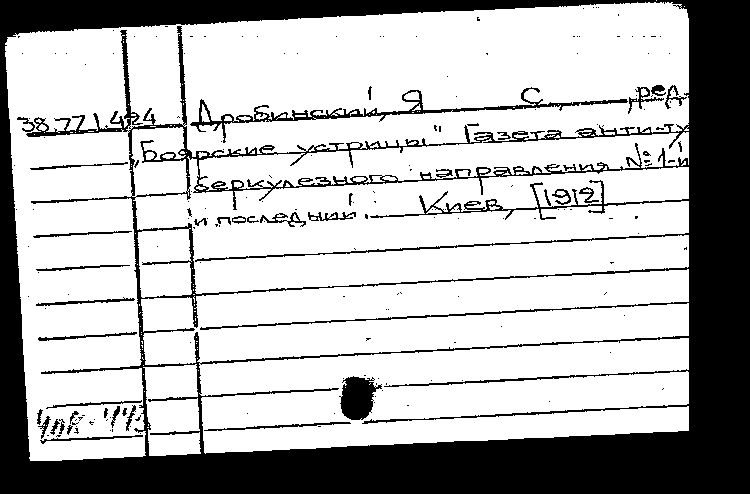 38.771.424 Дробинский, Я С., ред.
„Боярские устрицы" Газета анти-ту
беркулезного направления. №1-й
и последний. Киев, [1912]